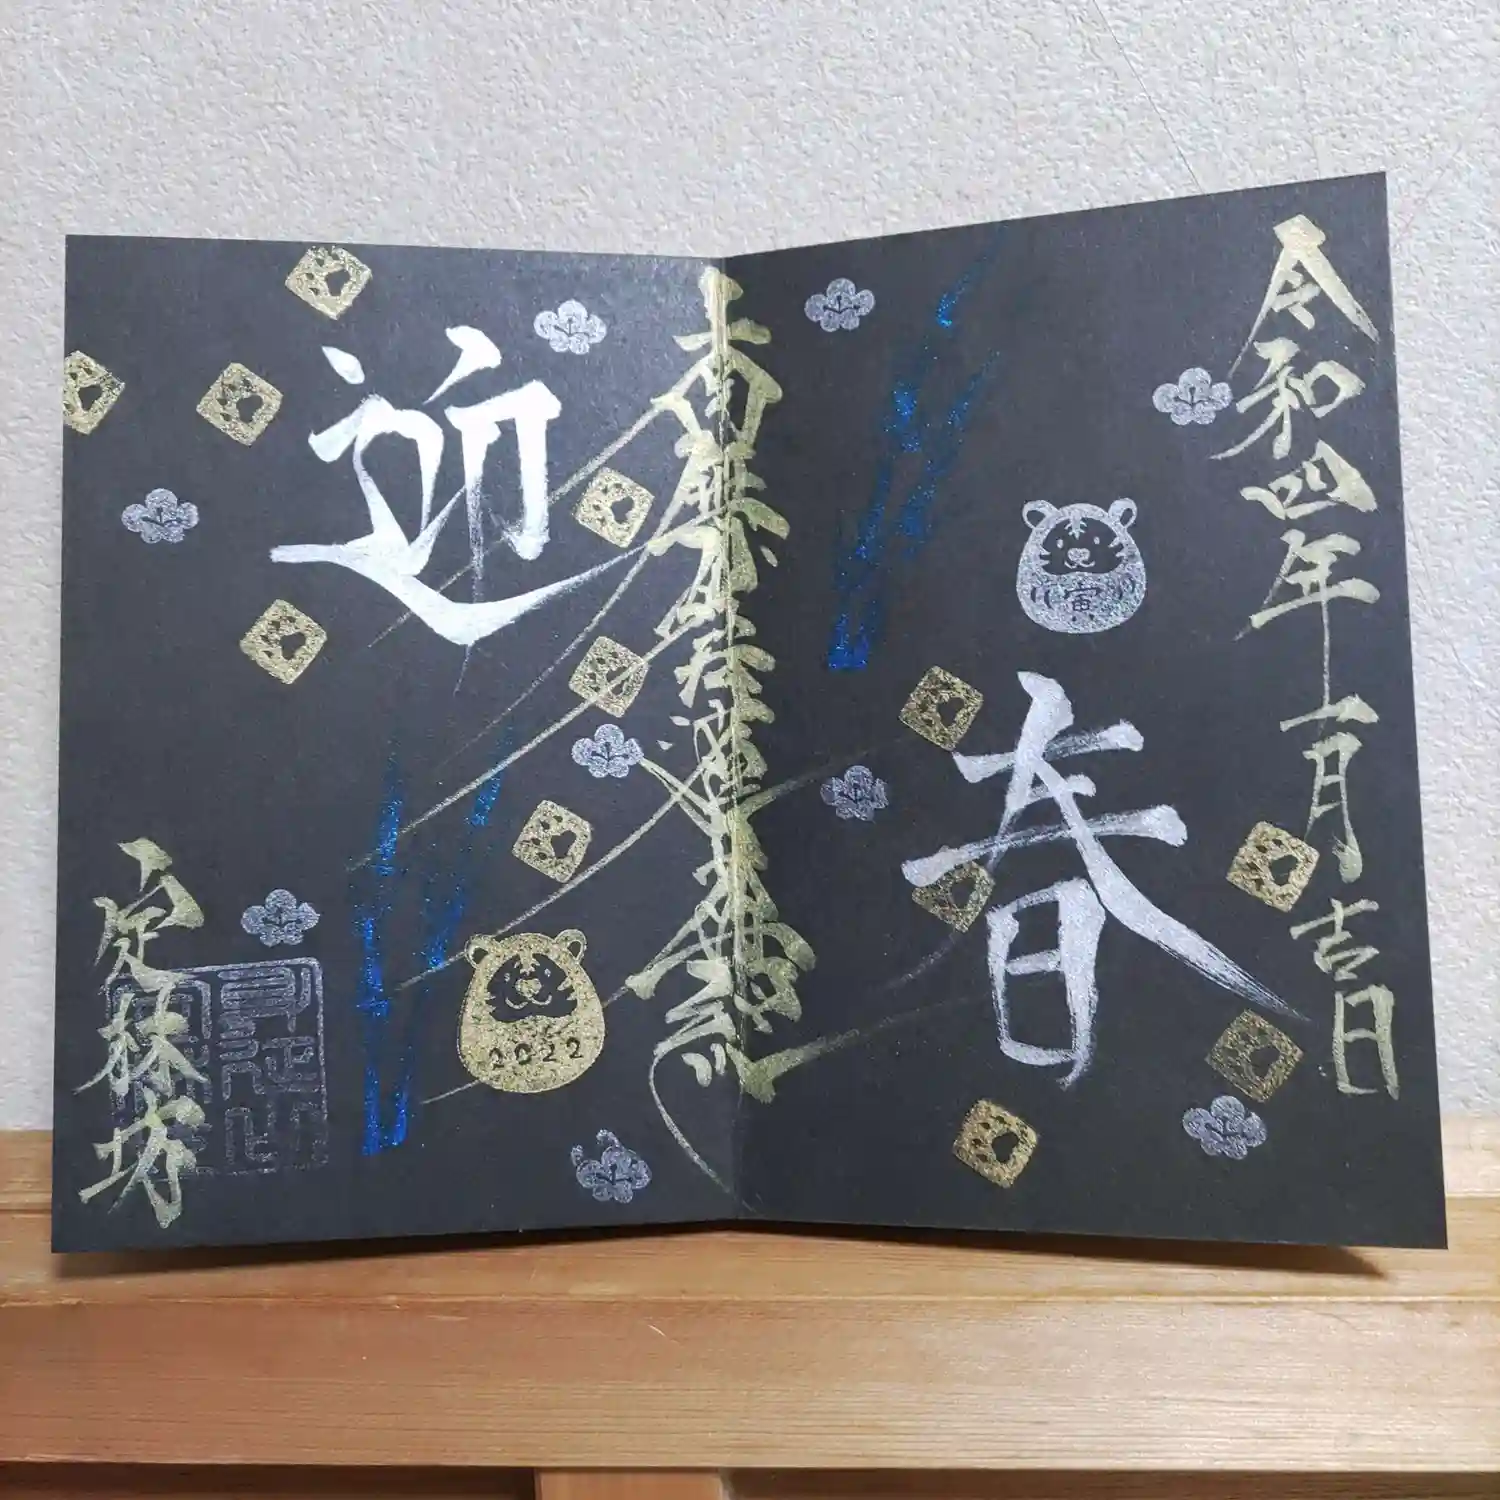 令和四年一月吉日
寅
迎
春
南無妙法蓮華経
2022
定林坊
身延山